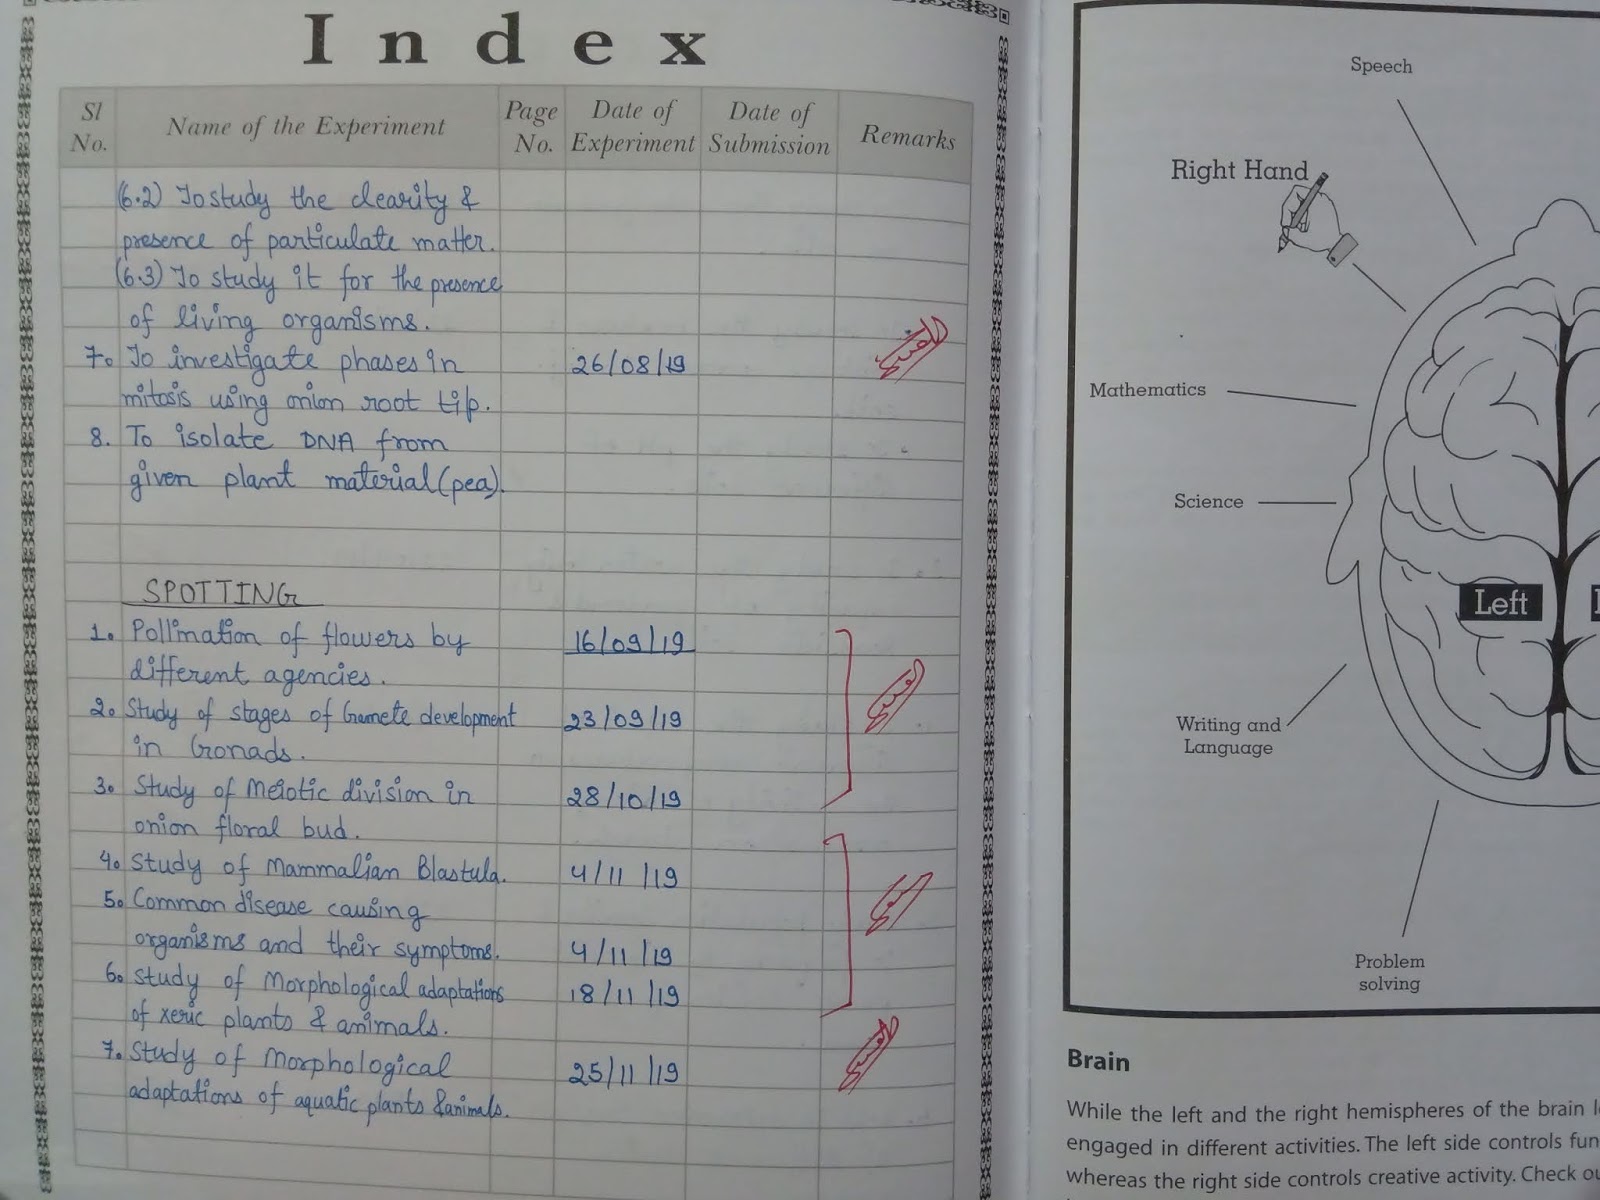 Index
Sl No. Name of the Experiment Page No. Date of Experiment Date of Submission Remarks
(6.2) To study the clearity &
presence of particulate matter.
(6.3) To study it for the presence
of living organisms.
7. To investigate phases in 26/08/19
mitosis using onion root tip.
8. To isolate DNA from
given plant material (pea).
SPOTTING
1. Pollination of flowers by 16/09/19
different agencies.
2. Study of stages of Gamete development 23/09/19
in Gonads.
3. Study of Meiotic division in 28/10/19
onion floral bud.
4. Study of Mammalian Blastula. 4/11/19
5. Common disease causing
organisms and their symptoms. 4/11/19
6. Study of Morphological adaptations 18/11/19
of xeric plants & animals.
7. Study of Morphological 25/11/19
adaptations of aquatic plants & animals.
Speech
Right Hand
Mathematics
Science
Left
Writing and
Language
Problem
solving
Brain
While the left and the right hemispheres of the brain
engaged in different activities. The left side controls
whereas the right side controls creative activity. Check